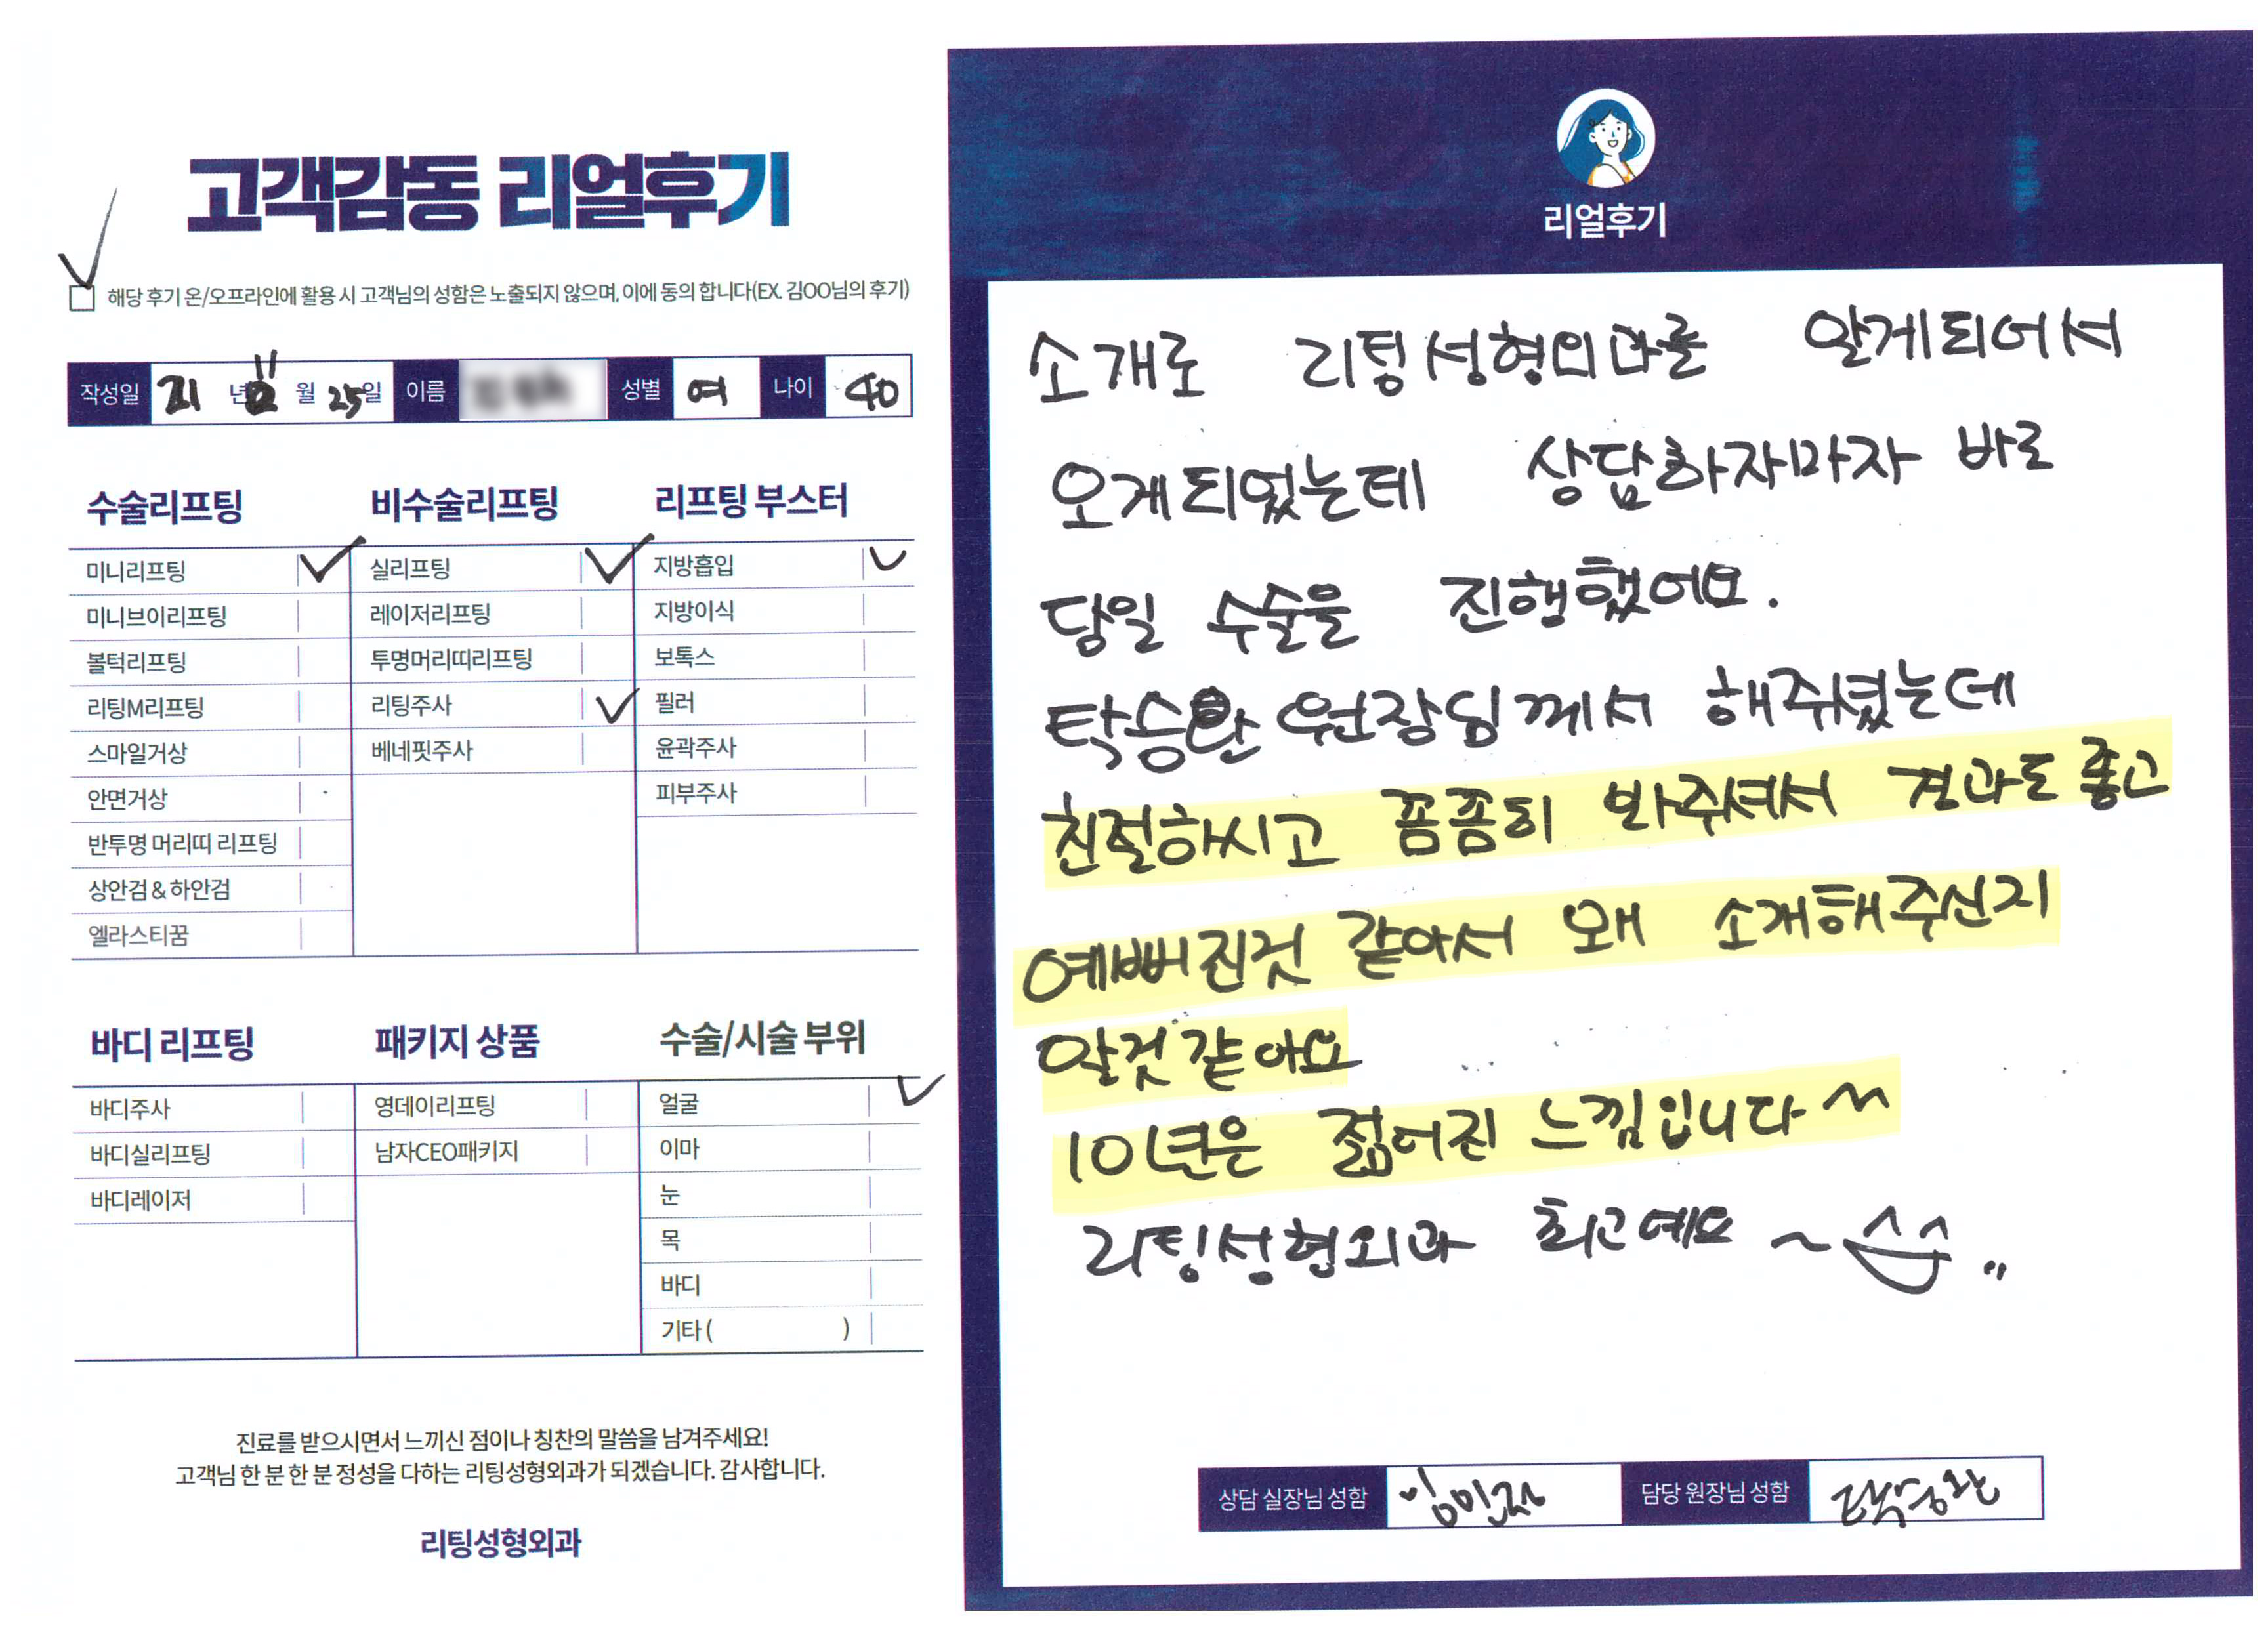 고객감동 리얼후기
해당 후기 온/오프라인에 활용 시 고객님의 성함은 노출되지 않으며, 이에 동의 합니다(EX. 김OO님의 후기)
작성일 21 년 월 25일 이름 성별 여 나이 40
수술리프팅
미니리프팅
미니브이리프팅
볼턱리프팅
리팅M리프팅
스마일거상
안면거상
반투명 머리띠 리프팅
상안검&하안검
엘라스티꿈
비수술리프팅
실리프팅
레이저리프팅
투명머리띠리프팅
리팅주사
베네핏주사
리프팅 부스터
지방흡입
지방이식
보톡스
필러
윤곽주사
피부주사
바디 리프팅
바디주사
바디실리프팅
바디레이저
패키지 상품
영데이리프팅
남자CEO패키지
수술/시술 부위
얼굴
이마
눈
목
바디
기타 ( )
진료를 받으시면서 느끼신 점이나 칭찬의 말씀을 남겨주세요!
고객님 한 분 한 분 정성을 다하는 리팅성형외과가 되겠습니다. 감사합니다.
리팅성형외과
리얼후기
소개로 리팅성형외과를 알게되어서
오게되었는데 상담하자마자 바로
당일 수술을 진행했어요.
탁승환 원장님께서 해주셨는데
친절하시고 꼼꼼히 봐주셔서 결과도 좋고
예뻐진것 같아서 왜 소개해주신지
알것 같아요
10년은 젊어진 느낌입니다~
리팅성형외과 최고예요 ~ ^^
상담 실장님 성함
담당 원장님 성함 탁승환